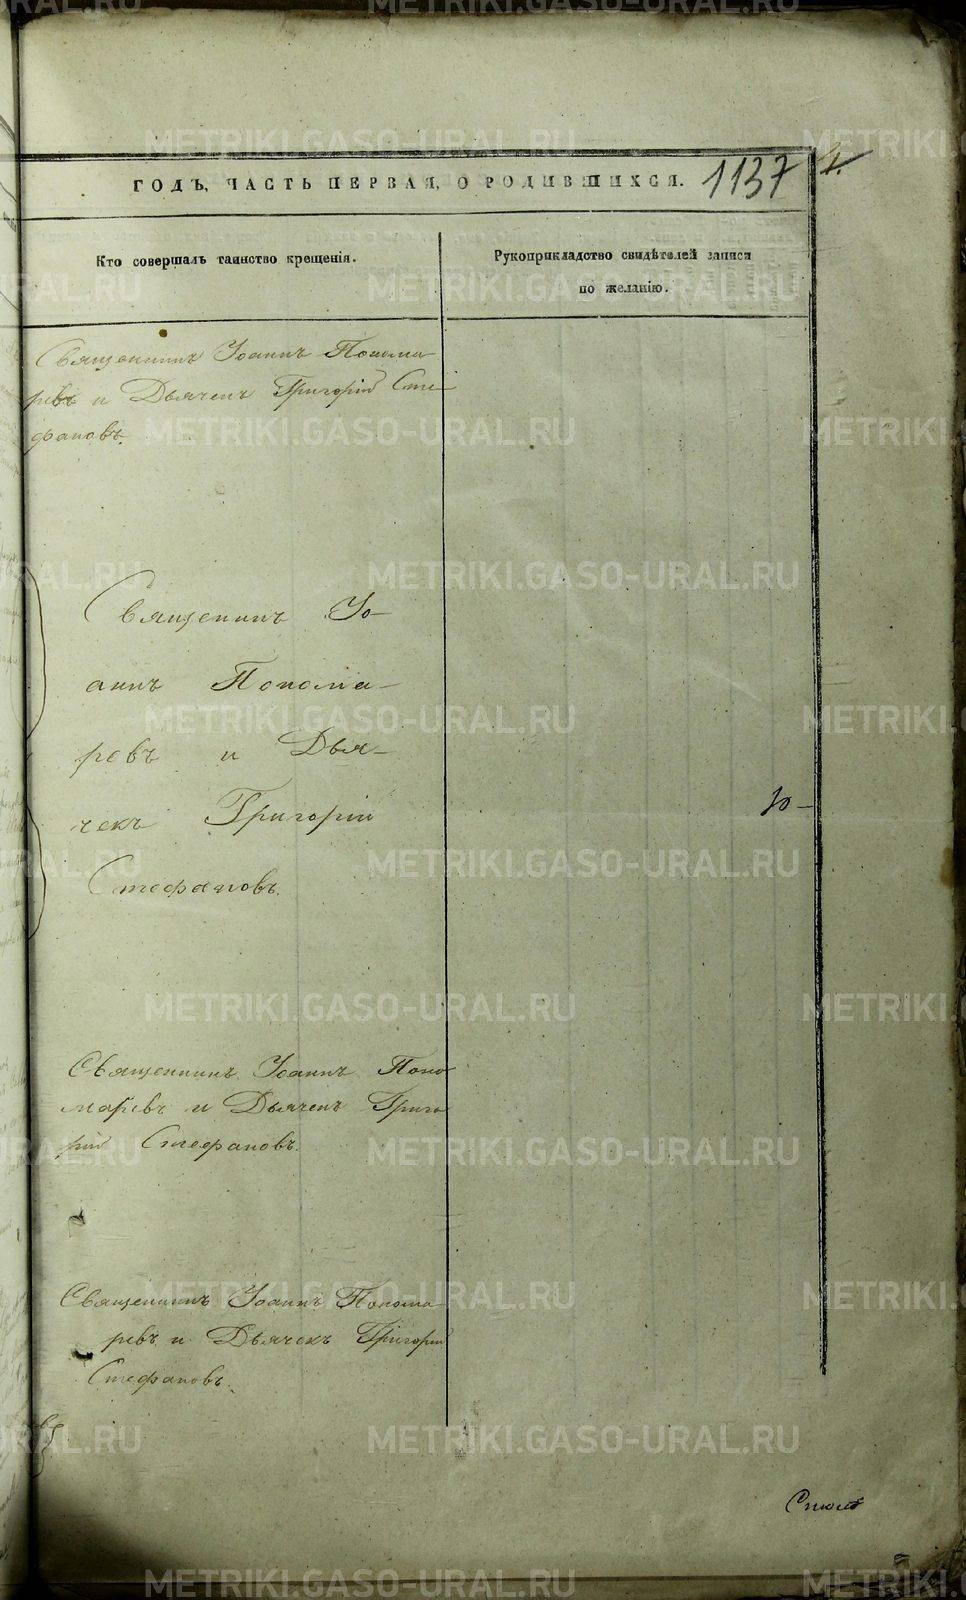 ГОДЪ, ЧАСТЬ ПЕРВАЯ, О РОДИВШИХСЯ. 1137
Кто совершалъ таинство крещенія.
Рукоприкладство свидѣтелей записи
по желанію.
Священникъ Іоаннъ Понома
ревъ и Дьячекъ Григорій Сте-
фановъ.
Священникъ Іо-
аннъ Понома-
ревъ и Дья-
чекъ Григорій
Стефановъ.
Священникъ Іоаннъ Поно
маревъ и Дьячекъ Григо
рій Стефановъ.
Священникъ Іоаннъ Понома
ревъ и Дьячекъ Григорій
Стефановъ.
METRIKI.GASO-URAL.RU